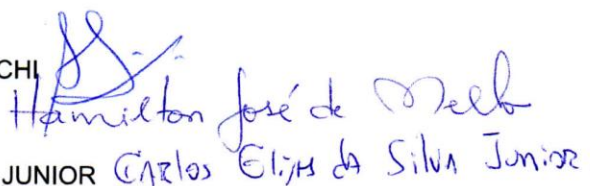 CHI
Hamilton José de Mello
JUNIOR Carlos Elias da Silva Junior